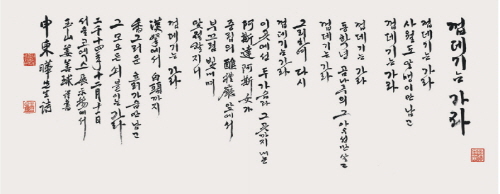 껍데기는 가라
껍데기는 가라
사월도 알맹이만 남고
껍데기는 가라
껍데기는 가라
동학년 곰나루의 그 아우성만 살고
껍데기는 가라
그리하여 다시
껍데기는 가라
이곳에선 두 가슴과 그곳까지 내논
阿斯達 阿斯女가
中立의 醮禮廳 앞에서
부끄럼 빛내며
맞절할지니
껍데기는 가라
漢拏에서 白頭까지
향그러운 흙가슴만 남고
그 모오든 쇠붙이는 가라
二千十四年十二月十日
展示場에서
玉山 姜 球
申東曄先生詩